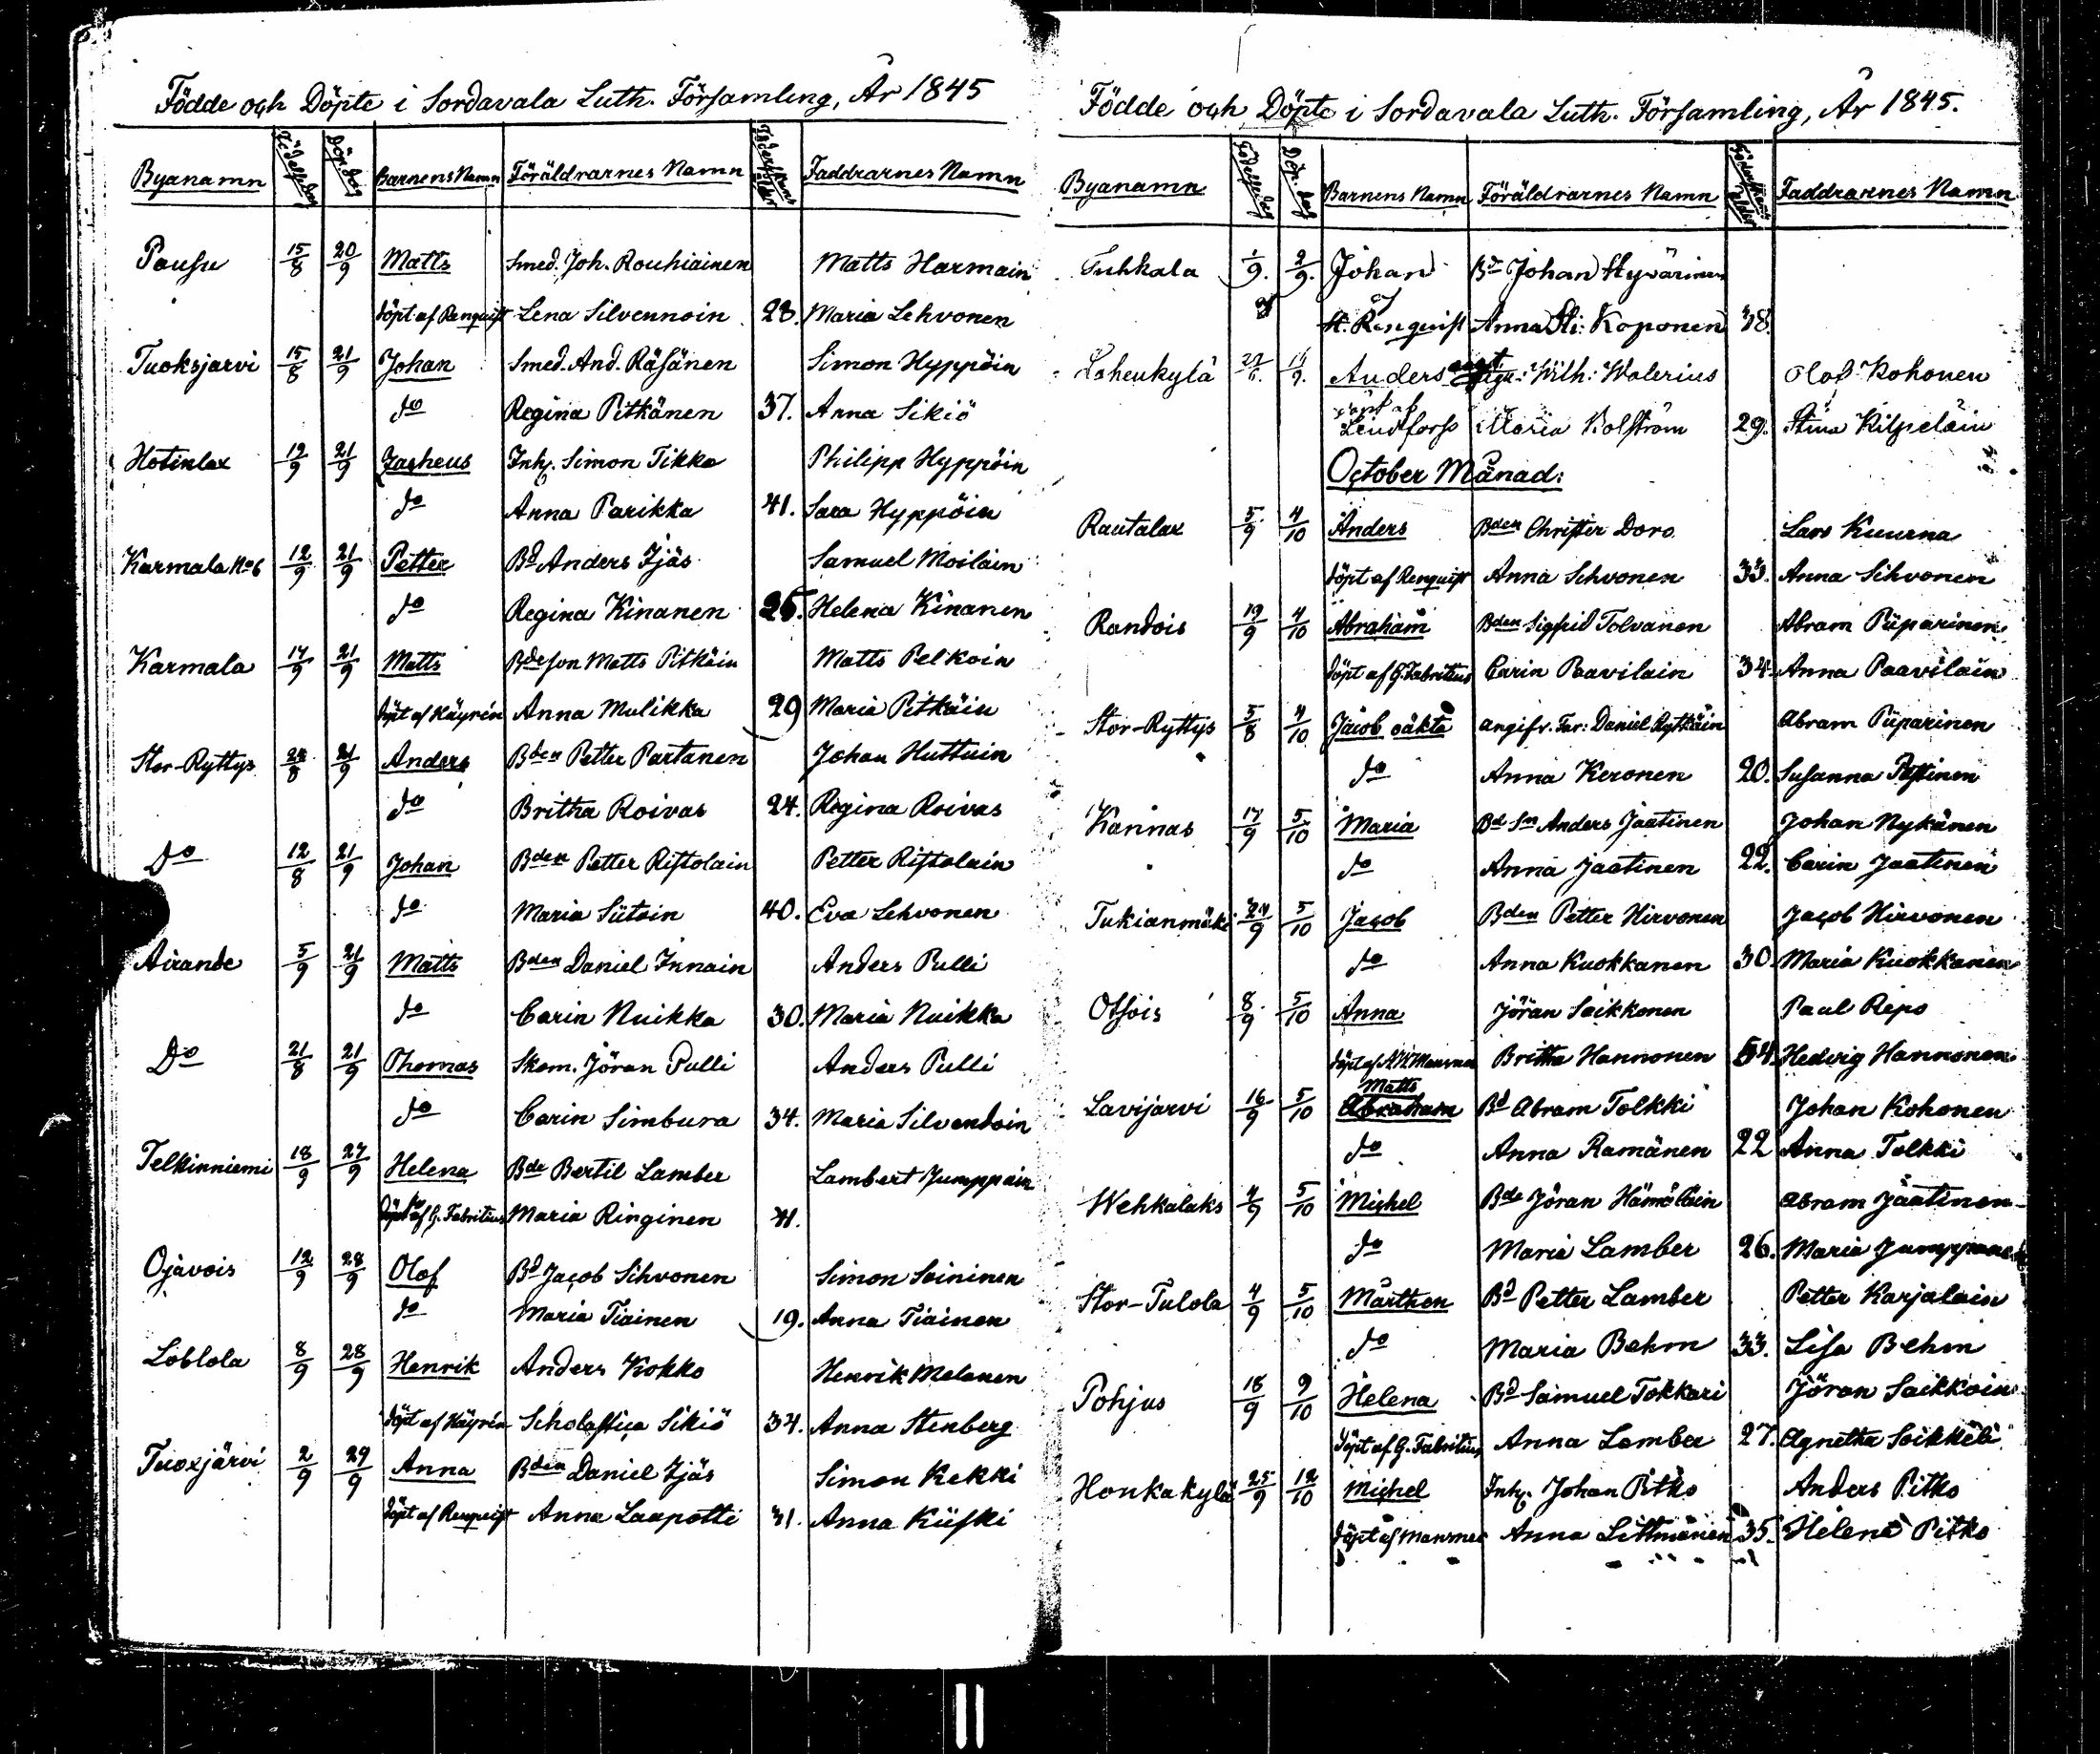 Födde och Döpte i Sordavala Luth. Församling, År 1845
Byanamn Födelsedag Döp. dag Barnens Namn Föräldrarnes Namn Faddrarnes Namn
Pausu 15/8 20/9 Matts Smed. Joh. Rouhiainen Matts Harmain
döpt af Renquist Lena Silvennoin 28. Maria Lehvonen
Tuoksjarvi 15/8 21/9 Johan Smed. And. Räsänen Simon Hyppöin
do Regina Pitkänen 37. Anna Sikiö
Hotinlax 12/9 21/9 Zacheus Inh. Simon Tikka Philipp Hyppöin
do Anna Parikka 41. Sara Hyppöin
Karmala No 6 12/9 21/9 Petter Bd Anders Ijäs Samuel Moilain
do Regina Kinanen 25. Helena Kinanen
Karmala 17/9 21/9 Matts Bdeson Matts Pitkäin Matts Pelkoin
döpt af Häyrén Anna Mulikka 29 Maria Pitkäin
Stor-Ryttys 24/8 21/9 Anders Bden Petter Partanen Johan Huttuin
do Britha Roivas 24. Regina Roivas
Do 12/8 21/9 Johan Bden Petter Ristolain Petter Ristolain
do Maria Siitoin 40. Eva Lehvonen
Airande 5/9 21/9 Matts Bden Daniel Innain Anders Pulli
do Carin Nuikka 30. Maria Nuikka
Do 21/8 21/9 Thomas Skom. Jöran Pulli Anders Pulli
do Carin Simbura 34. Maria Silvendoin
Telkinniemi 18/9 27/9 Helena Bde Bertil Lamber Lambert Jumppain
döpt af G. Fabritius Maria Ringinen 41.
Ojavois 12/9 28/9 Olof Bd Jacob Sihvonen Simon Soininen
do Maria Tiainen 19. Anna Tiainen
Löblola 8/9 28/9 Henrik Anders Kokko Henrik Melanen
döpt af Häyrén Scholastica Sikiö 34. Anna Stenberg
Tuoxjärvi 2/9 29/9 Anna Bden Daniel Ijäs Simon Kekki
döpt af Renquist Anna Laapotti 31. Anna Kiiski
Födde och Döpte i Sordavala Luth. Församling, År 1845.
Byanamn Födelsedag Döp. dag Barnens Namn Föräldrarnes Namn Faddrarnes Namn
Tuhkala 1/9. 2/9. Johan Bd Johan Hyvärinen
af H. Renquist Anna Sti: Koponen 38.
Lahenkylä Anders Wilh: Walerius Olof Kohonen
döpt af Lindforss Maria Kolström 29. Stina Kilpeläin
October Månad:
Rautalax 5/9 4/10 Anders Bden Christer Doro Lars Kuurna
döpt af Renquist Anna Sihvonen 33. Anna Sihvonen
Randois 19/9 4/10 Abraham Bden Sigfrid Tolvanen Abram Piiparinen
döpt af G. Fabritius Carin Paavilain 34. Anna Paavilain
Stor-Ryttys 5/8 4/10 Jacob oäkta angifv. Far: Daniel Ryttäin Abram Piiparinen
do Anna Keronen 20. Susanna
Kannas 17/9 5/10 Maria Bd Sn Anders Jaatinen Johan Nykänen
do Anna Jaatinen 22. Carin Jaatinen
Tukianmäki 24/9 5/10 Jacob Bden Petter Hirvonen Jacob Hirvonen
do Anna Kuokkanen 30. Maria Kuokkanen
Otsois 8/9 5/10 Anna Jöran Saikkonen Paul Repo
Britha Hannonen 34. Hedvig Hannonen
Matts
Lavijarvi 16/9 5/10 Abraham Bd Abram Tolkki Johan Kohonen
do Anna Ramänen 22 Anna Tolkki
Wehkalaks 4/9 5/10 Michel Bde Jöran Hämäläin Abram Jaatinen
do Maria Lamber 26. Maria
Stor-Tulola 4/9 5/10 Marthen Bd Petter Lamber Petter Karjalain
do Maria Behm 33. Lisa Behm
Pohjus 18/9 9/10 Helena Bd Samuel Tokkari Jöran Saikkoin
döpt af G. Fabritius Anna Lamber 27. Agnetha Soikkeli
Honkakylä 25/9 12/10 Michel Inh. Johan Pitko Anders Pitko
döpt af Manner Anna Littmanen 35. Helena Pitko